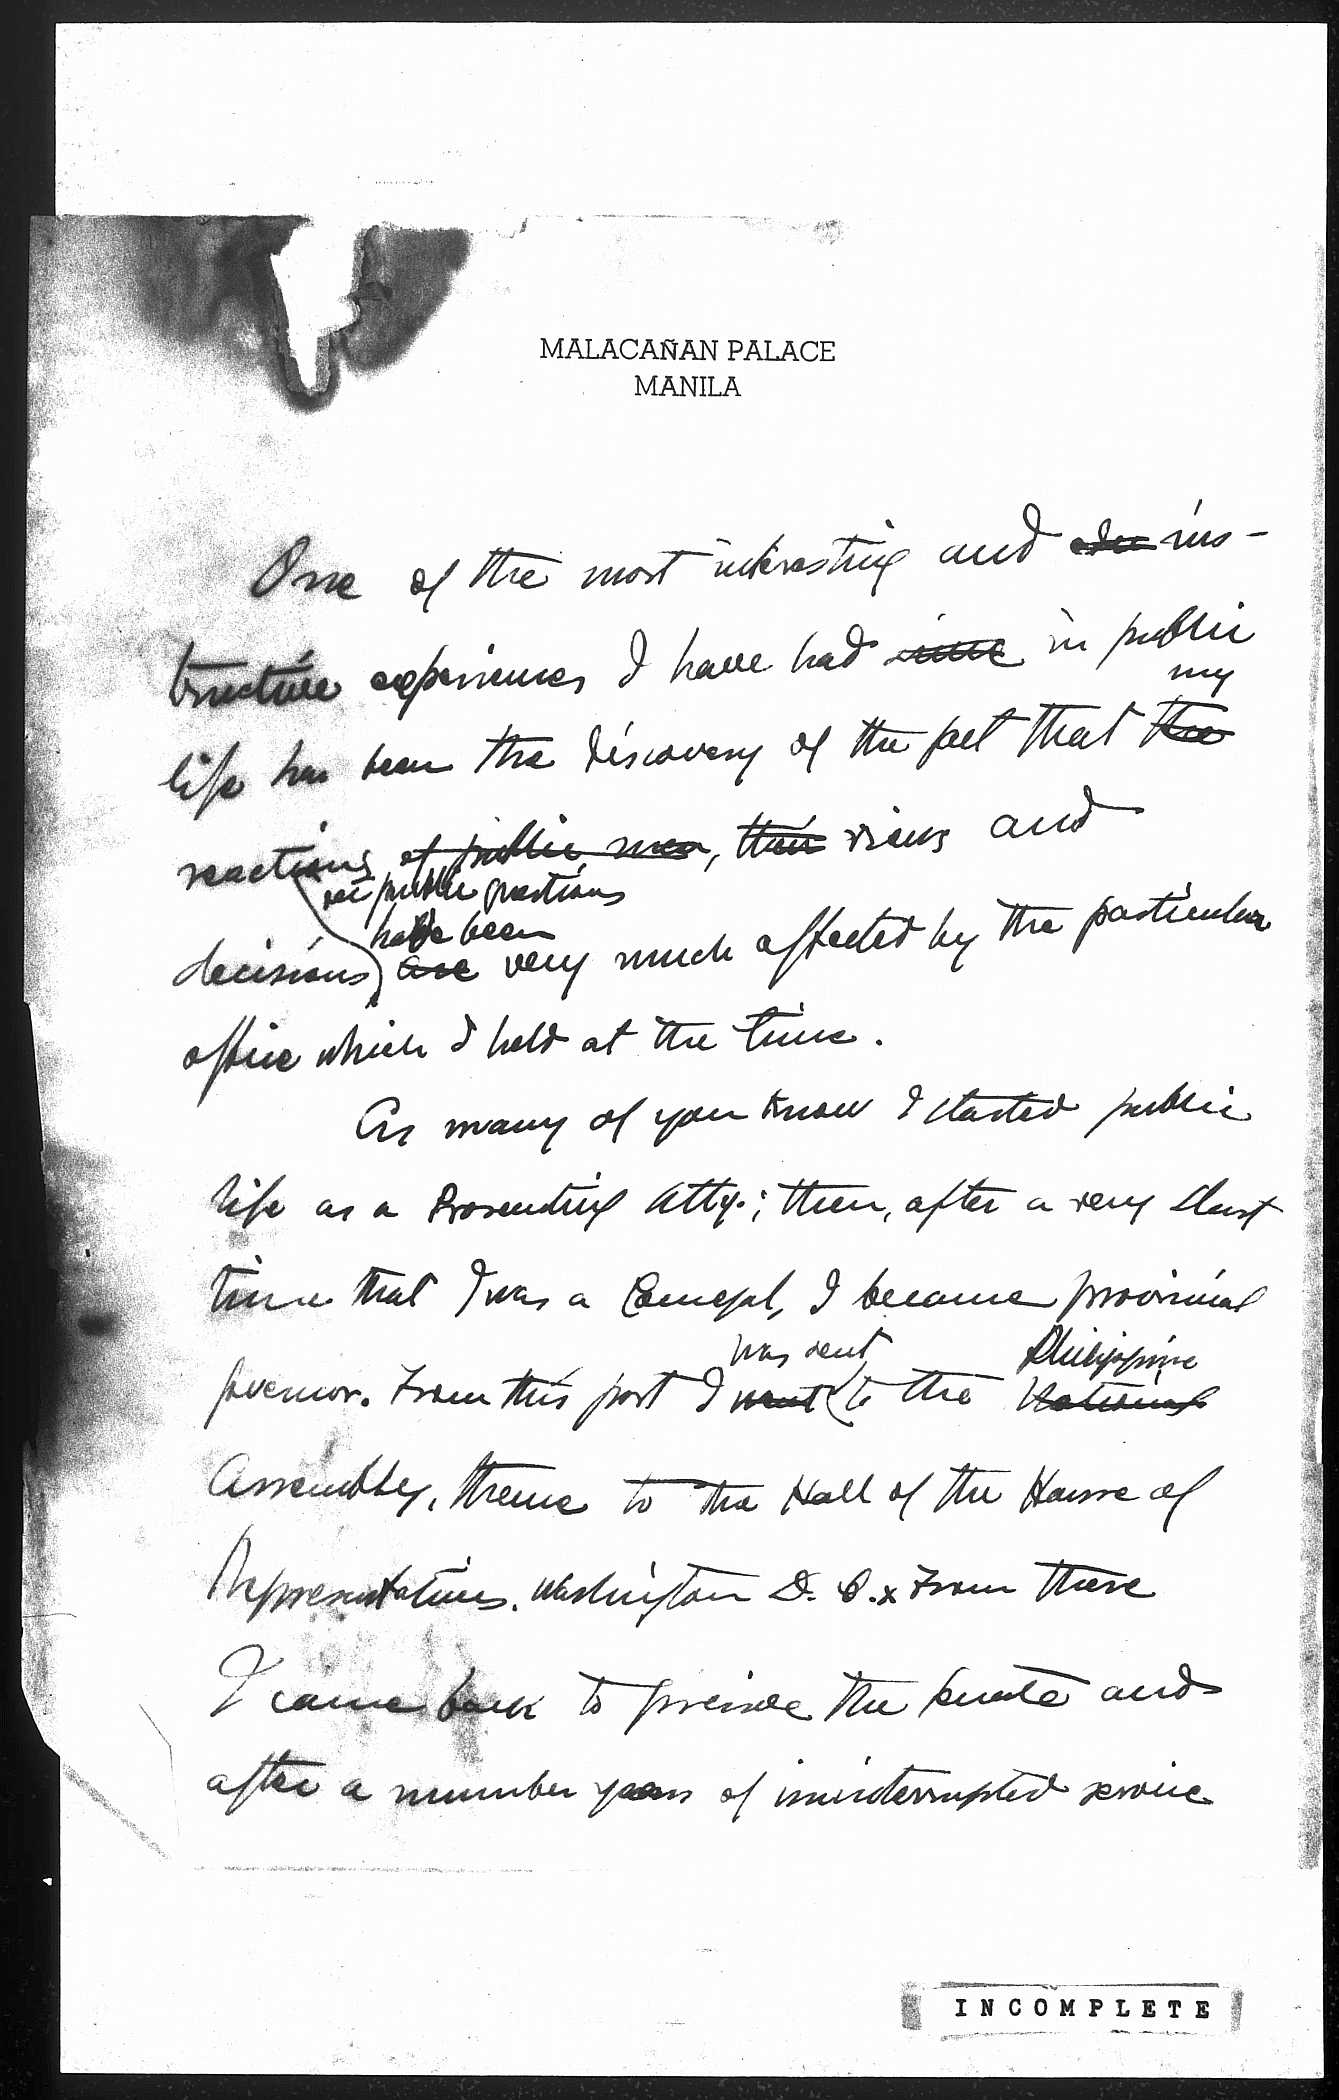 MALACAÑAN PALACE
MANILA
One of the most interesting and edu ins-
tructive experiences I have had since in public
my
life has been the discovery of the fact that the
reactions of public men, their views and
on public questions
have been
decisions are very much affected by the particular
office which I held at the time.
As many of you know I started public
life as a Prosecuting Atty.; then, after a very short
time that I was a Concejal, I became provincial
was sent Philippine
governor. From this post I went to the National
Assembly, thence to the Hall of the House of
Representatives, Washington D. C. x From there
I came back to preside the Senate and
after a number years of uninterrupted service
INCOMPLETE